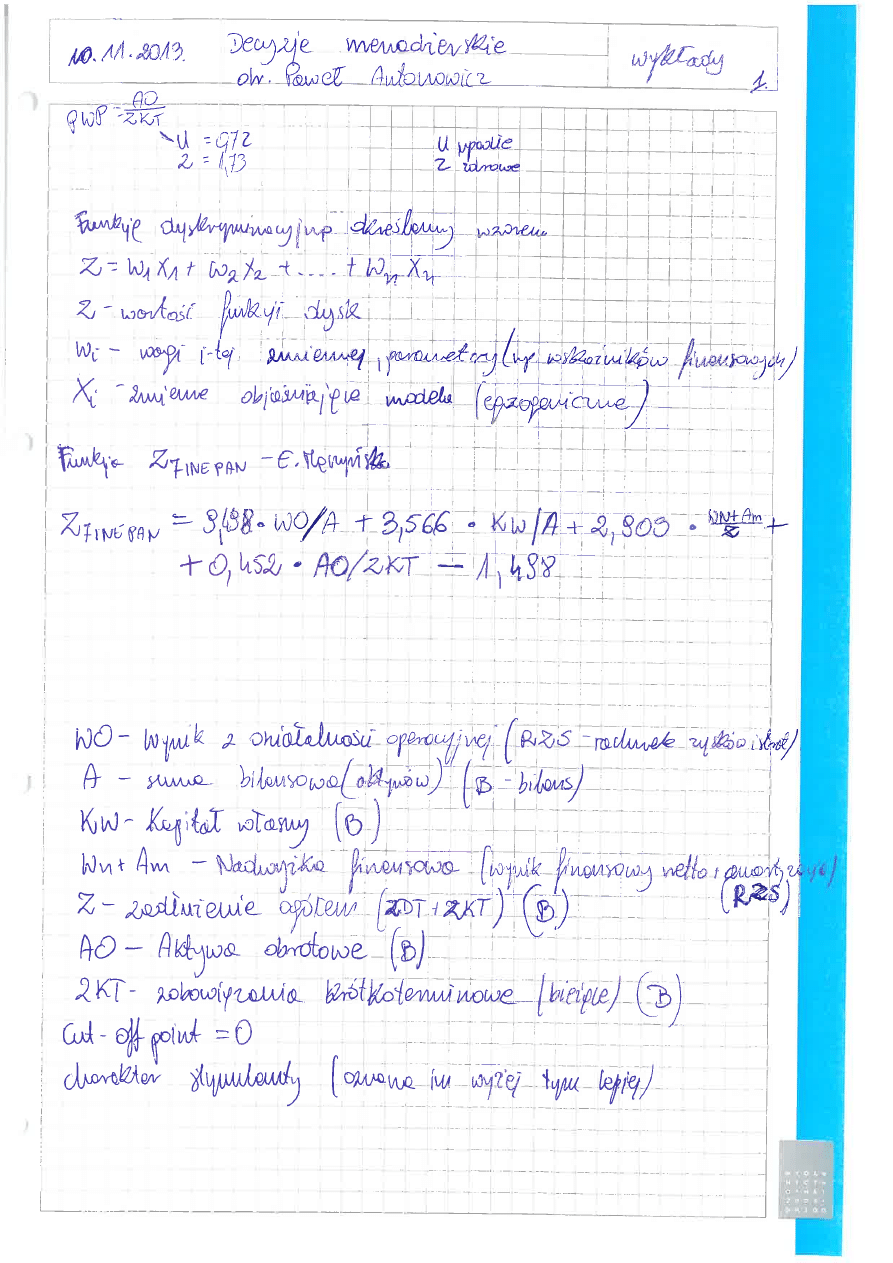 10.11.2013. Decyzje menadżerskie
dr. Paweł Antonowicz
wykłady
1.
PWP = AO/ZKT
U = 0,72
Z = 1,73
U upadłe
Z zdrowe
Funkcję dyskryminacyjną określamy wzorem
Z = W1X1 + W2X2 + .... + WnXn
Z – wartość funkcji dysk
Wi – wagi i-tej zmiennej, parametry (np wskaźników finansowych)
Xi – zmienne objaśniające modelu (egzogeniczne)
Funkcja Z7INEPAN – E. Mączyńska
Z7INEPAN = 9,498 • WO/A + 3,566 • KW/A + 2,903 • WN+Am/Z +
+ 0,452 • AO/ZKT – 1,498
WO – Wynik z działalności operacyjnej (RZS – rachunek zysków i strat)
A – suma bilansowa (aktywów) (B – bilans)
KW – Kapitał własny (B)
Wn + Am – Nadwyżka finansowa (wynik finansowy netto + amortyzacja)
(RZS)
Z – zadłużenie ogółem (ZDT + ZKT) (B)
AO – Aktywa obrotowe (B)
ZKT – zobowiązania krótkoterminowe (bieżące) (B)
Cut-off point = 0
charakter stymulanty (oznacza im wyżej tym lepiej)